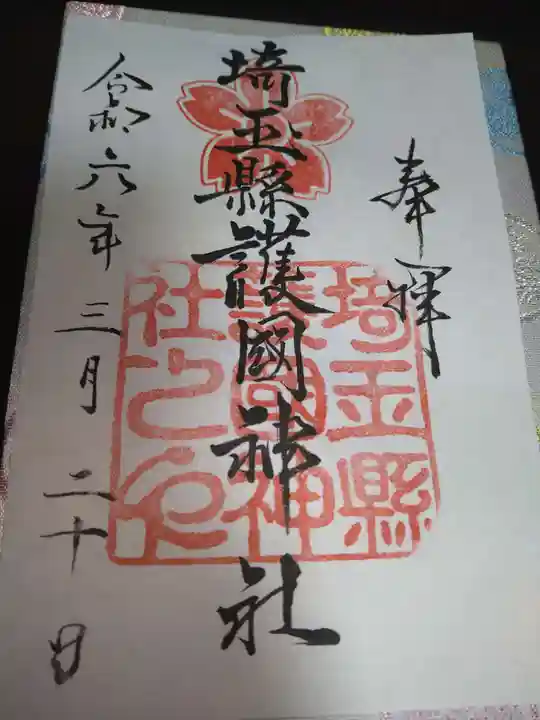 奉拝
埼玉縣護國神社
埼玉縣
護國神
社之印
令和六年三月二十日